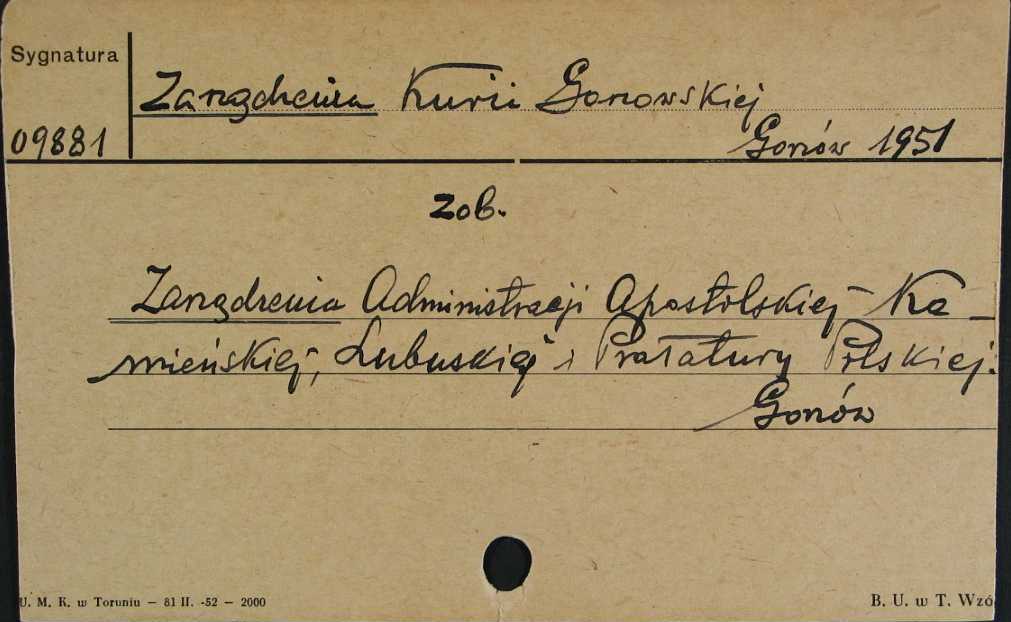 Sygnatura
Zarządzenia Kurii Gorzowskiej
09881
Gorzów 1951
zob.
Zarządzenia Administracji Apostolskiej Ka-
mieńskiej, Lubuskiej i Prałatury Polskiej.
Gorzów
U. M. K. w Toruniu — 81 II. -52 — 2000
B. U. w T. Wzó